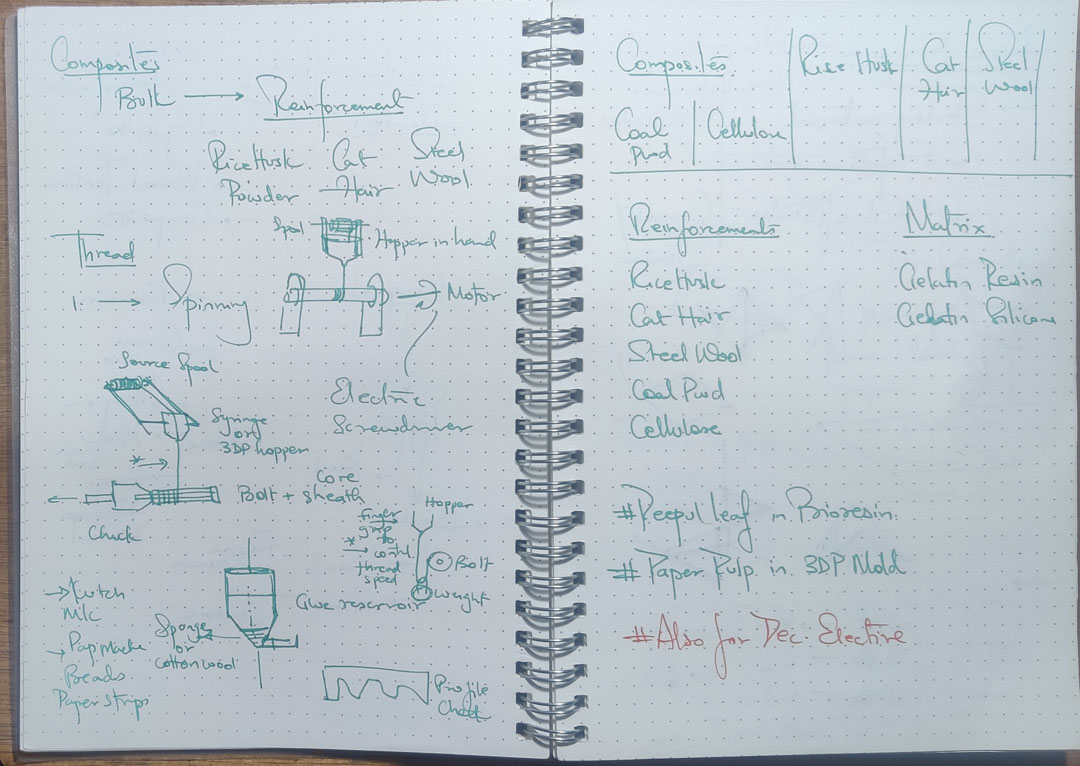 Composites
Bulk → Reinforcement
Rice Husk Powder
Cat Hair
Steel Wool
Thread
1. → Spinning
Spool
Hopper in hand
Motor
Electric
Screwdriver
Source Spool
Syringe
or
3DP hopper
* →
Core
Bolt + sheath
Chuck
Hopper
finger
grip
to
* → contl.
thread
speed
Bolt
weight
Glue reservoir
Sponge
or
cotton wool
→ Pap Mache
Beads
Paper strips
Profile
Composites
Rice Husk
Cat
Hair
Steel
Wool
Coal
Cellulose
Reinforcements
Rice Husk
Cat Hair
Steel Wool
Cellulose
Matrix
Gelatin Resin
Gelatin Silicone
# Peepul leaf in Bioresin.
# Paper Pulp in 3DP Mold
# Also for Dec. Elective